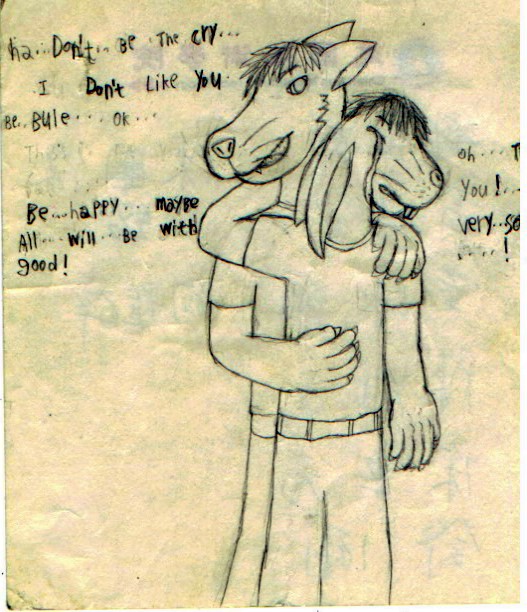 ha...Don't.. Be The cry...
I Don't Like You
Be.. Bule.... ok...
Be...happy... maybe
All... Will.. Be with
good!
oh....
You!..
very..so
..!